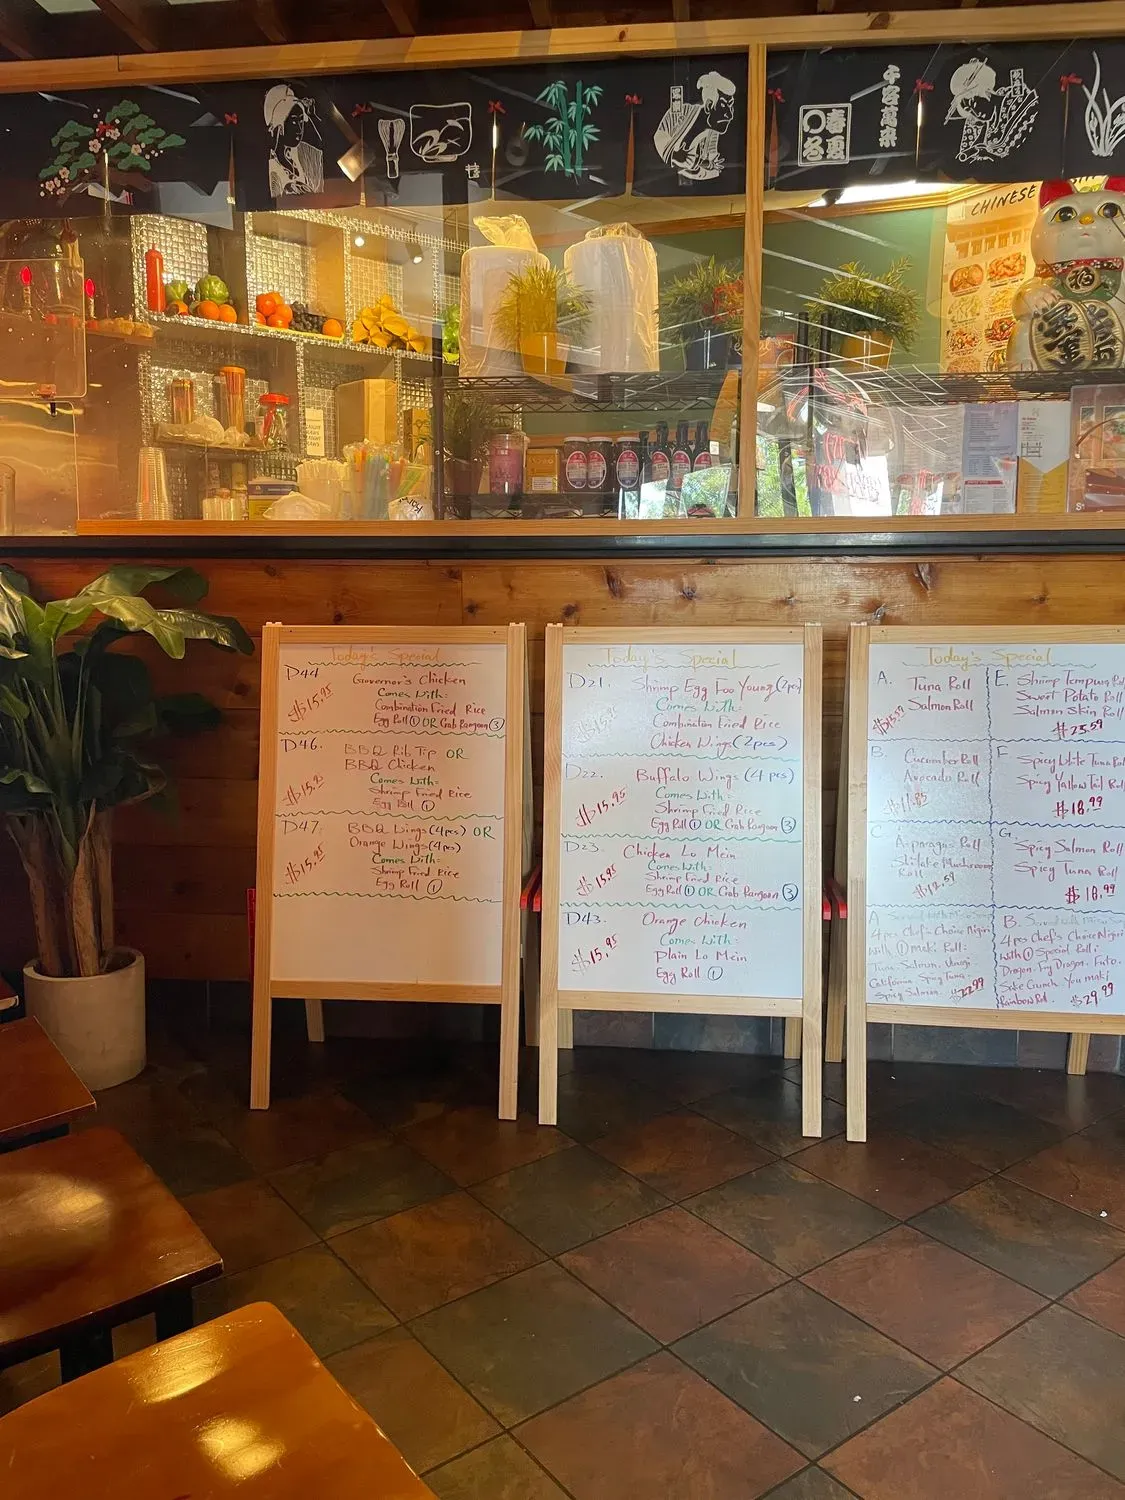 CHINESE
春夏
冬
福
Today's Special
D44
$15.95
Governor's Chicken
Comes With:
Combination Fried Rice
Egg Roll ① OR Crab Rangoon ③
D46.
BBQ Rib Tip OR
BBQ Chicken
Comes With:
Shrimp Fried Rice
Egg Roll ①
D47.
$15.95
BBQ Wings (4pcs) OR
Orange Wings (4pcs)
Comes With:
Shrimp Fried Rice
Egg Roll ①
Today's Special
D21.
Shrimp Egg Foo Young (2pcs)
Comes With:
Combination Fried Rice
Chicken Wings (2pcs)
D22.
$15.95
Buffalo Wings (4 pcs)
Comes With:
Shrimp Fried Rice
Egg Roll ① OR Crab Rangoon ③
D23.
$15.95
Chicken Lo Mein
Comes With:
Shrimp Fried Rice
Egg Roll ① OR Crab Rangoon ③
D43.
$15.95
Orange Chicken
Comes With:
Plain Lo Mein
Egg Roll ①
Today's Special
A.
Tuna Roll
Salmon Roll
B.
Cucumber Roll
Avocado Roll
C.
Asparagus Roll
Shitake Mushroom
Roll
A
4 pcs Chef's Choice Nigiri
With ① Maki Roll:
Tuna. Salmon. Unagi.
California. Spicy Tuna.
Spicy Salmon. $22.99
E.
Shrimp Tempura
Sweet Potato Roll
Salmon Skin Roll
$23.59
F
Spicy White Tuna
Spicy Yellow Tail
$18.99
G.
Spicy Salmon Roll
Spicy Tuna Roll
$18.99
B.
4 pcs Chef's Choice Nigiri
With ① Special Roll:
Dragon.
Sake Crunch.
Rainbow Roll. $29.99